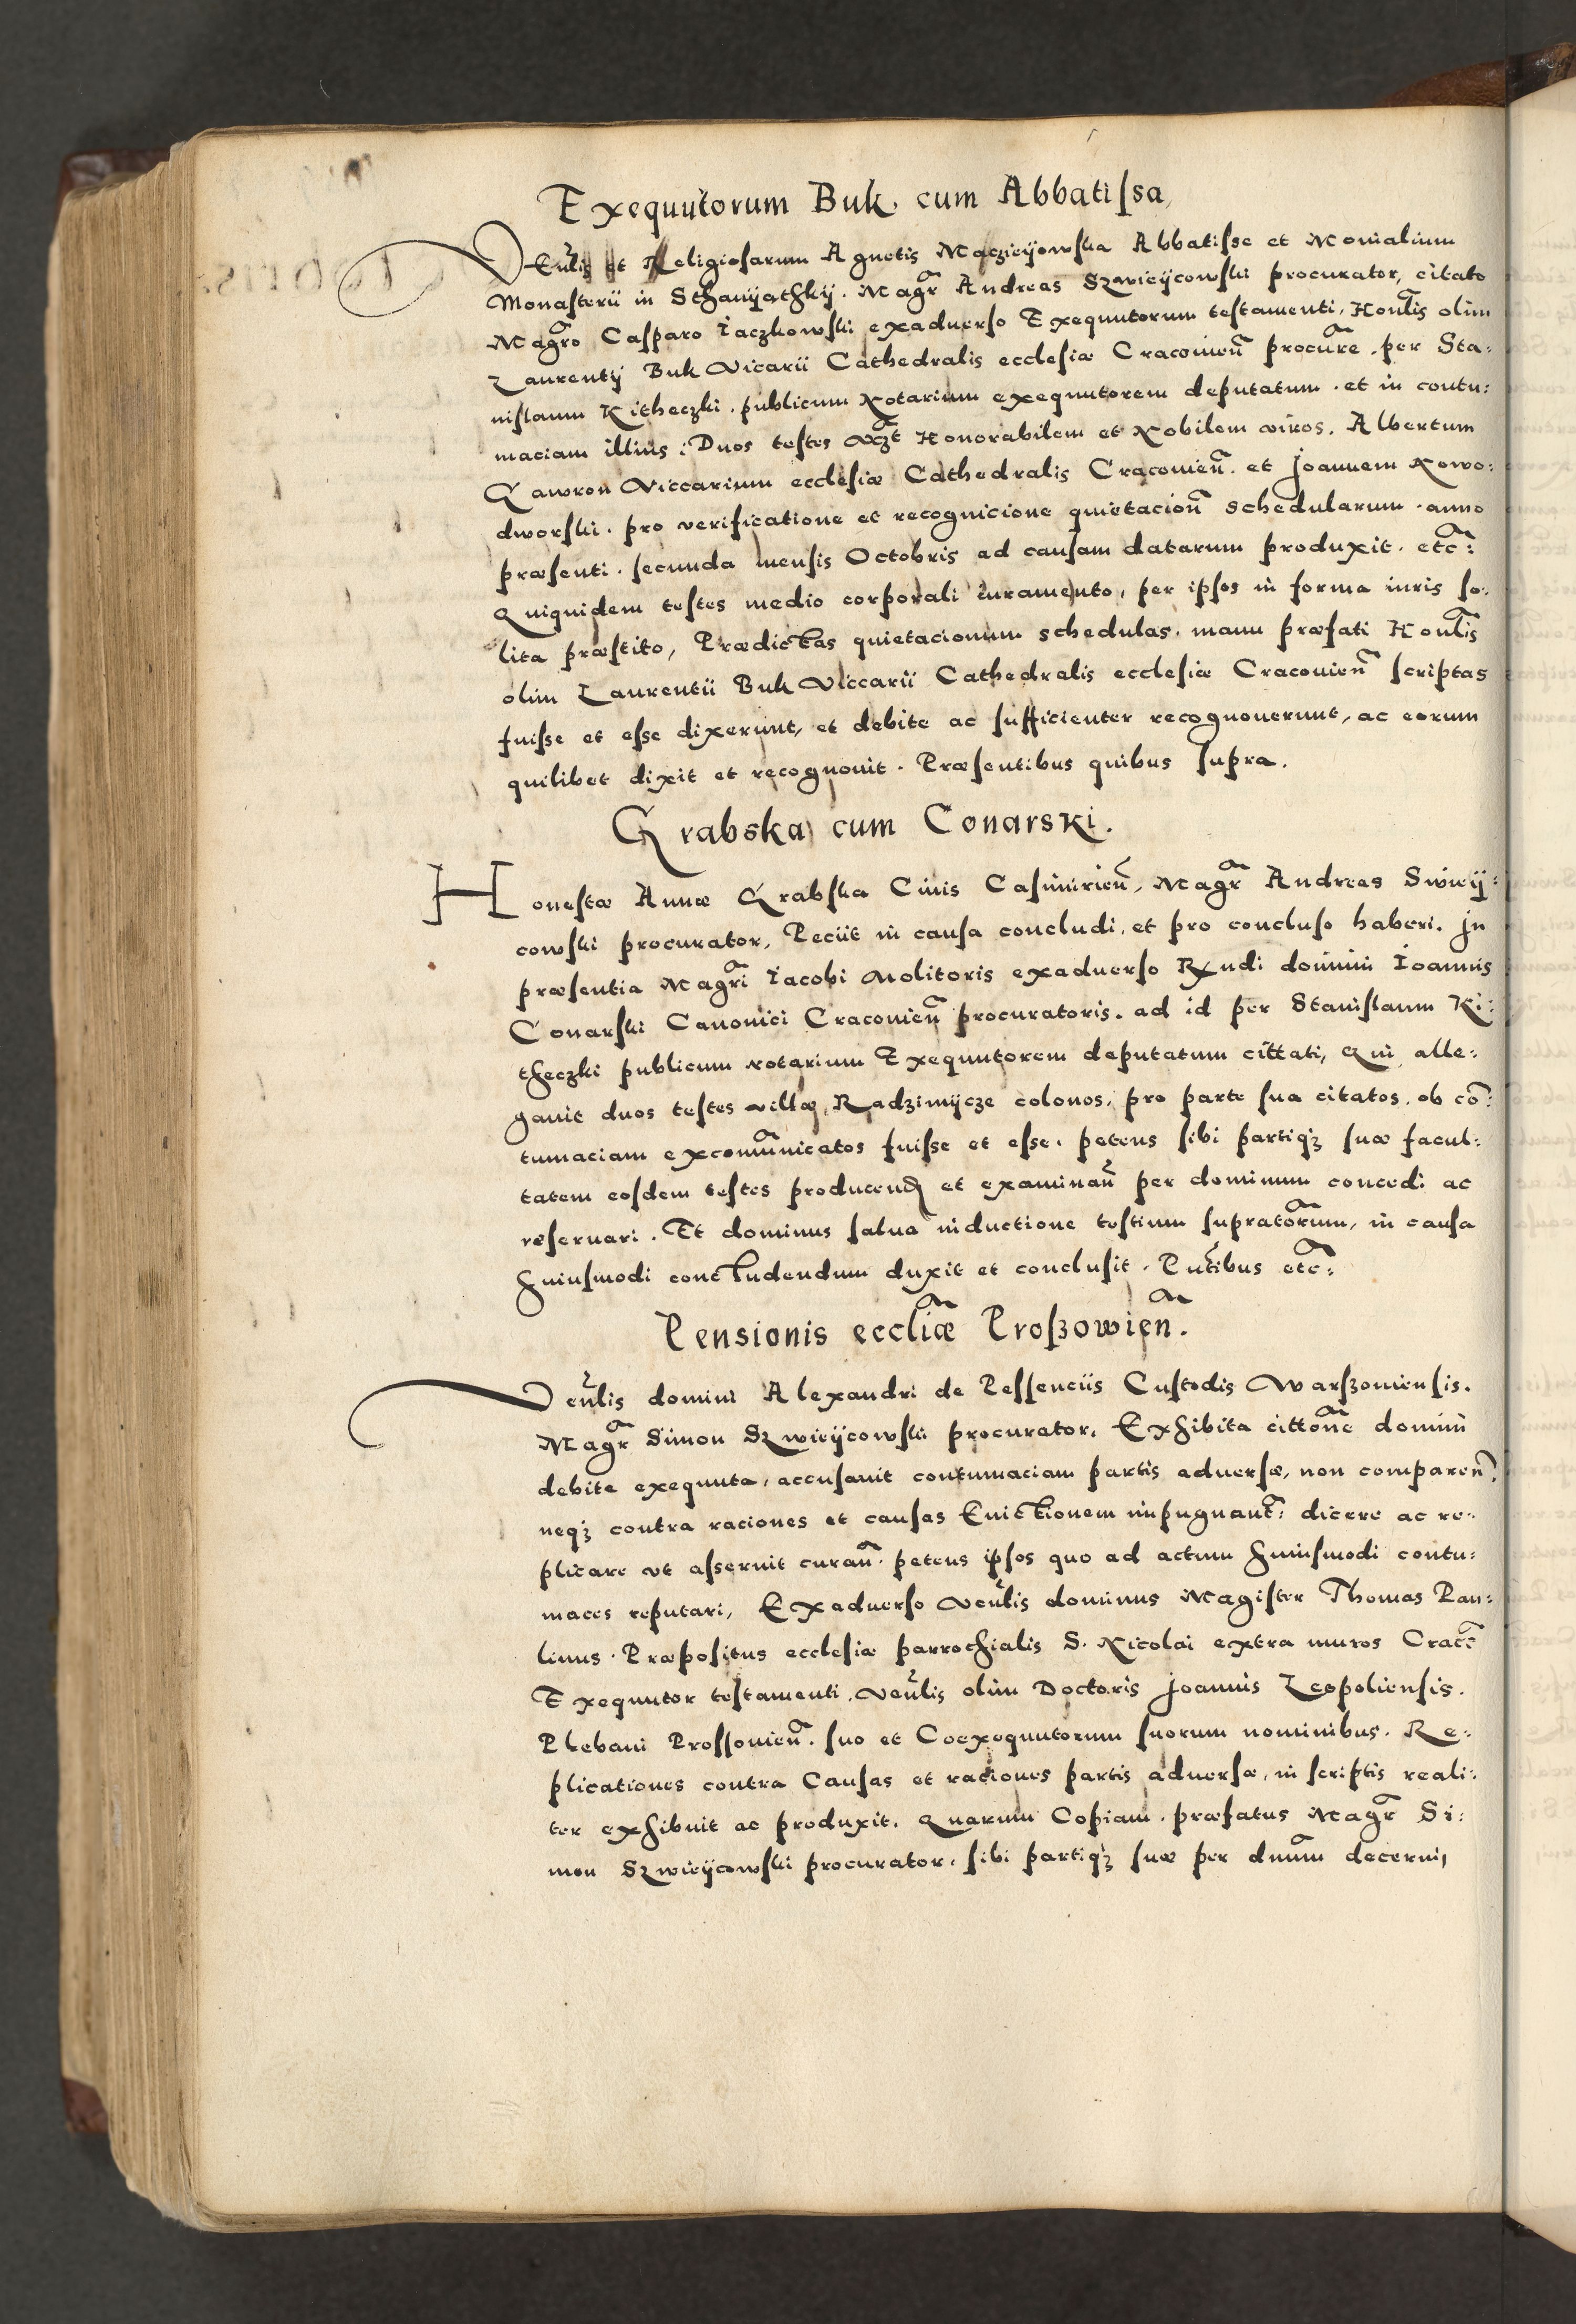 Exequutorum Buk cum Abbatissa,
Venlis et Religiosarum Agnetis Maczieijowska Abbatisse et Monialium
Monasterii in Sthanijathkij. Magr Andreas Szwieijcowski procurator, citato
Magro Casparo Iaczkowski exaduerso Exequutorum testamenti, Honlis olim
Laurentij Buk Vicarii Cathedralis ecclesiæ Cracouien procure. per Sta:
nislaum Kitheczki. publicum Notarium exequutorem deputatum. et in contu:
maciam illius: Duos testes vczt Honorabilem et Nobilem viros. Albertum
Gawron Viccarium ecclesiæ Cathedralis Cracouien. et Joannem Nowo:
dworski. pro verificatione et recognicione quietacion schedularum. anno
præsenti. secunda mensis Octobris ad causam datarum produxit. etc:
Quiquidem testes medio corporali iuramento, per ipsos in forma iuris so:
lita præstito, Prædictas quietacionum schedulas. manu præfati Honlis
olim Laurentii Buk Viccarii Cathedralis ecclesiæ Cracouien scriptas
fuisse et esse dixerunt, et debite ac sufficienter recognouerunt, ac eorum
quilibet dixit et recognouit. Præsentibus quibus supra.
Grabska cum Conarski.
Honestæ Annæ Grabska Ciuis Casimirien, Magr Andreas Swieij:
cowski procurator, Peciit in causa concludi, et pro concluso haberi. Jn
præsentia Magri Iacobi Molitoris exaduerso Rndi domini Ioannis
Conarski Canonici Cracouien procuratoris. ad id per Stanislaum Ki:
theczki publicum notarium Exequutorem deputatum cittati, Qui alle:
gauit duos testes villæ Radzimijcze colonos, pro parte sua citatos, ob co:
tumaciam excomunicatos fuisse et esse. petens sibi partiqz suæ facul:
tatem eosdem testes producend et examinan per dominum concedi ac
reseruari. Et dominus salua inductione testium supratorum, in causa
huiusmodi concludendum duxit et conclusit. Pntibus etc:
Pensionis eccliæ Proszowien.
Venlis domini Alexandri de Pessenciis Custodis Warszouiensis.
Magr Simon Szwieijcowski procurator. Exhibita cittone domini
debite exequuta, accusauit contumaciam partis aduersæ, non comparen,
neqz contra raciones et causas Euictionem impugnant: dicere ac re:
plicare vt asseruit curan. petens ipsos quo ad actum huiusmodi contu:
maces reputari, Exaduerso Venlis dominus Magister Thomas Pau:
linus. Præpositus ecclesiæ parrochialis S. Nicolai extra muros Crac:
Exequutor testamenti. Venlis olim Doctoris Joannis Leopoliensis.
Plebani Prossouien. suo et Coexequutorum suorum nominibus. Re:
plicationes contra Causas et raciones partis aduersæ, in scriptis reali:
ter exhibuit ac produxit. Quarum Copiam. præfatus Magr Si:
mon Szwieijcowski procurator. sibi partiqz suæ per dnum decerni,